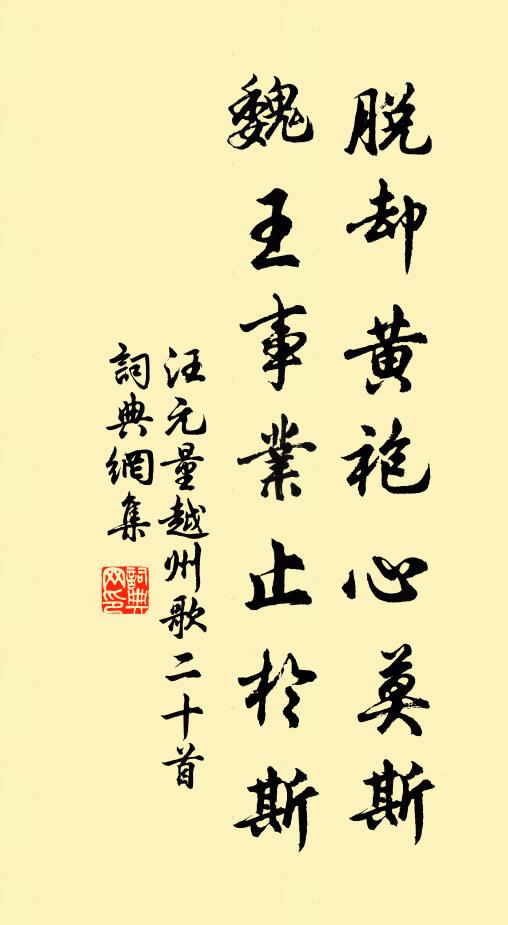 脱却黄袍心莫斯
魏王事業止於斯
汪元量越州歌二十首
詞典網集
詞典网印